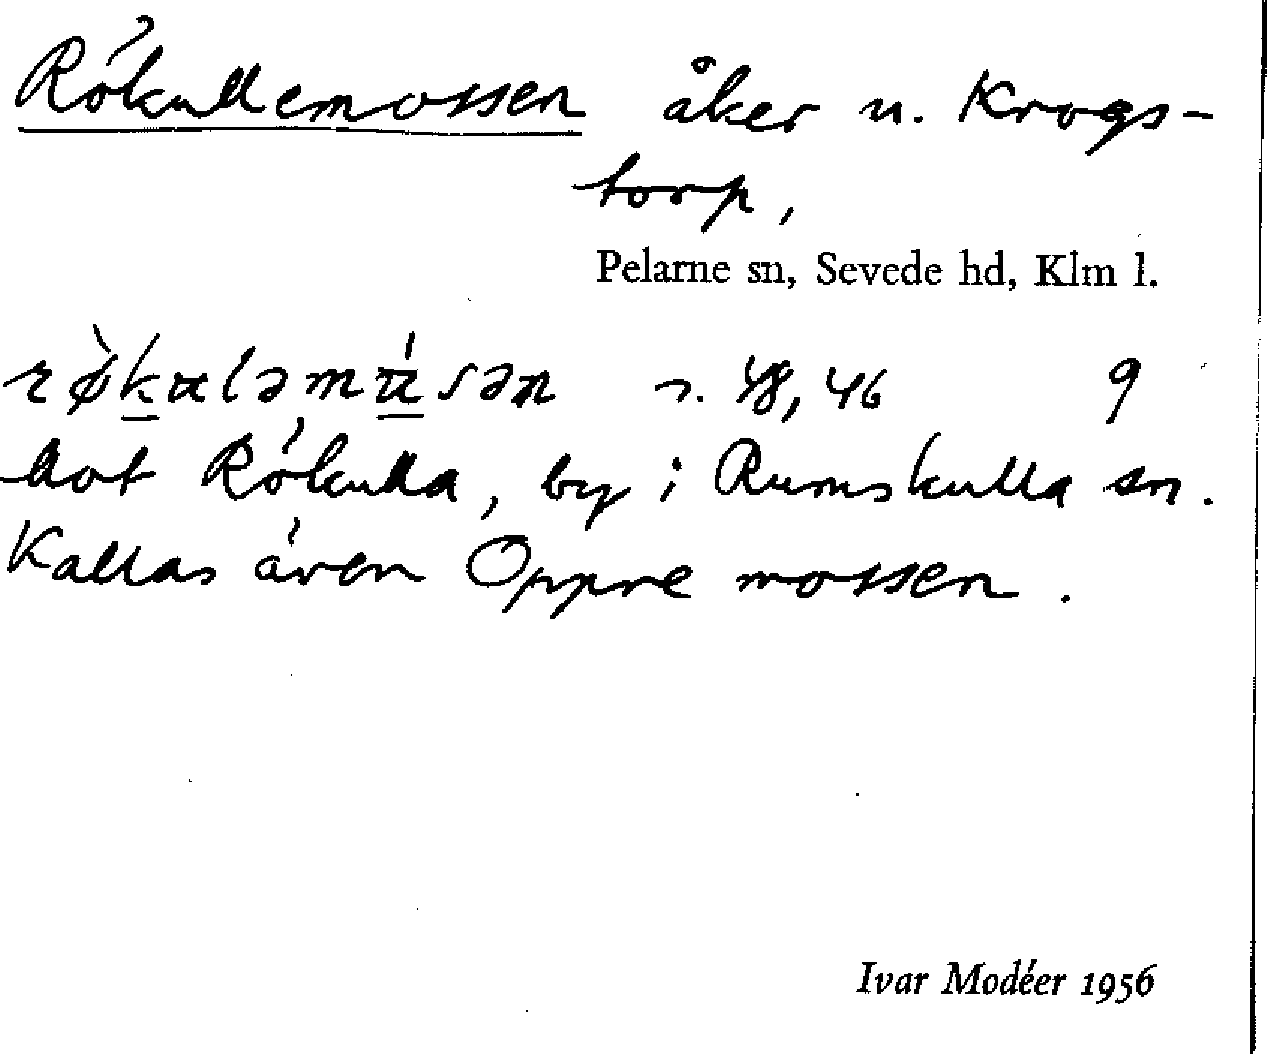 Rökullemossen åker u. Krogs-
torp,
Pelarne sn, Sevede hd, Klm l.
s. 48, 46 9
Mot Rökulla, by i Rumskulla sn.
Kallas även Oppre mossen.
Ivar Modéer 1956